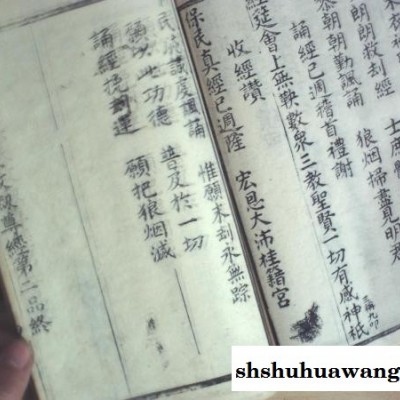 朗朗救刦經 狼烟掃盡見明
朝朝勤諷誦
誦經已週稽首禮謝
經筵會上無鞅數眾三教聖賢一切有感神祇
收經讚
保民真經已週隆 宏恩大沛桂籍宮
惟願末刦永無踪
虔諷誦
以此功德 普及於一切
誦經挽刦運 願把狼烟滅
第二品終
shshuhuawang